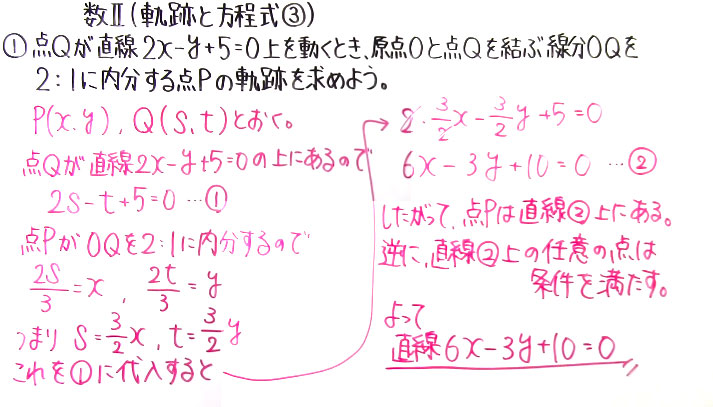 数Ⅱ(軌跡と方程式③)
①点Qが直線2x-y+5=0上を動くとき、原点Oと点Qを結ぶ線分OQを
2:1に内分する点Pの軌跡を求めよう。
P(x,y), Q(s,t)とおく。
点Qが直線2x-y+5=0の上にあるので
2s-t+5=0 …①
点PがOQを2:1に内分するので
2s/3=x, 2t/3=y
つまり s=3/2x, t=3/2y
これを①に代入すると
2・3/2x-3/2y+5=0
6x-3y+10=0 …②
したがって、点Pは直線②上にある。
逆に、直線②上の任意の点は
条件を満たす。
よって
直線6x-3y+10=0